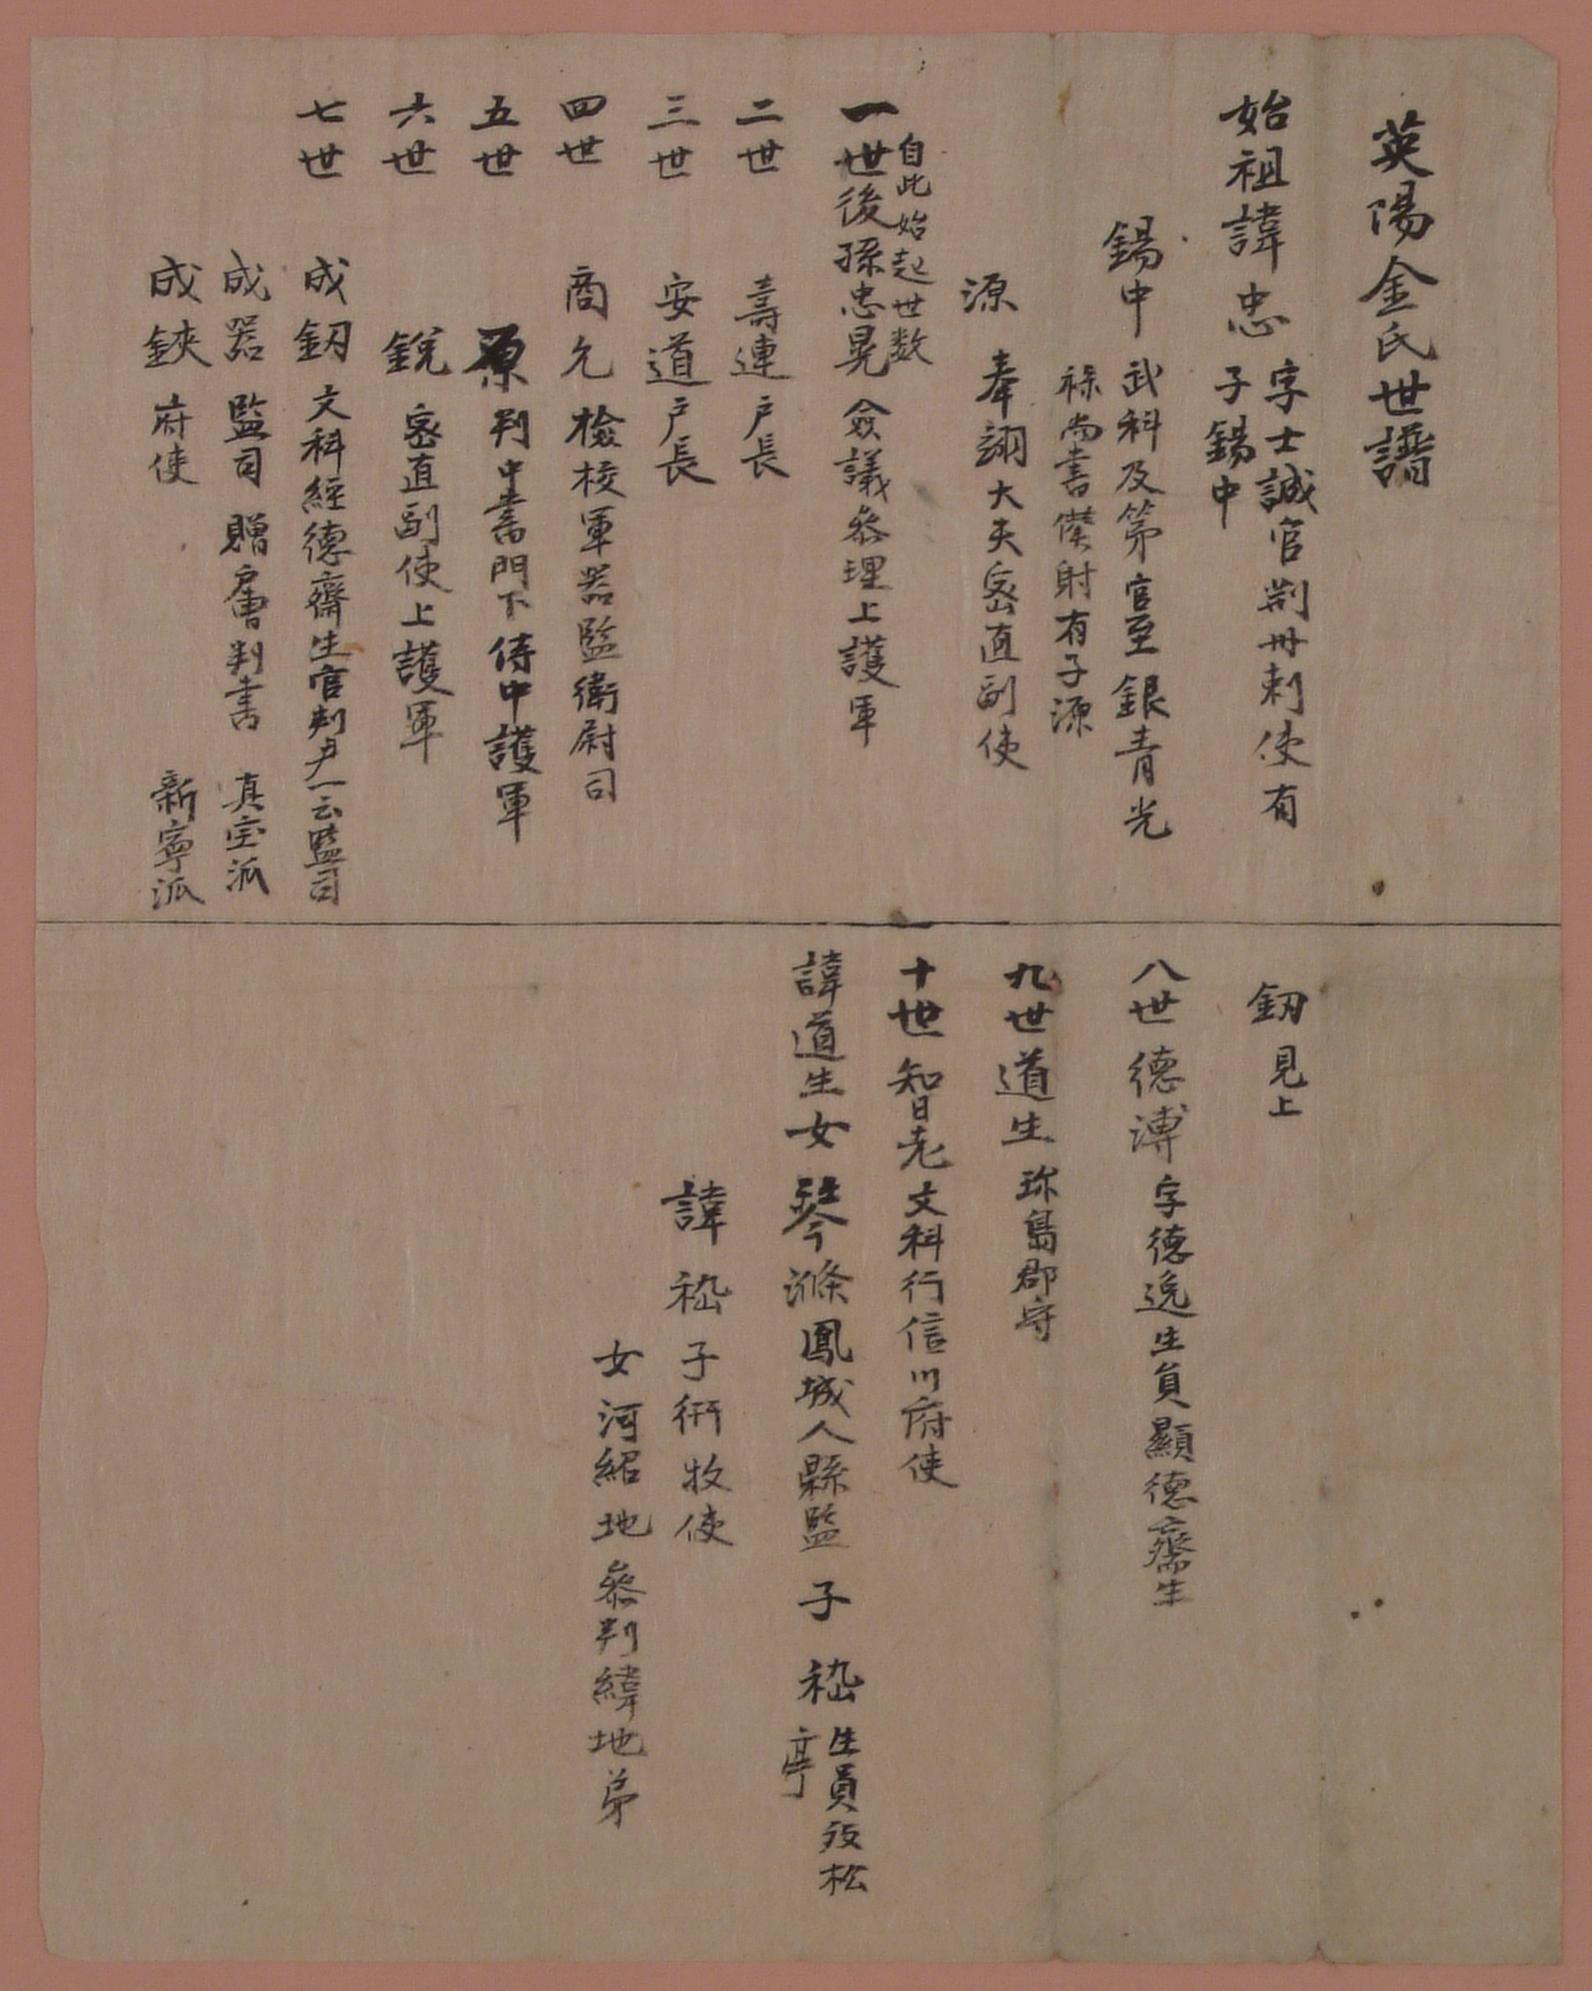 英陽金氏世譜
始祖諱忠 字士誠官荆州刺使有
子錫中
錫中 武科及第官至銀青光
祿尚書僕射有子源
源 奉翊大夫密直副使
自此始起世数
一世後孫忠晃 僉議叅理上護軍
二世 壽連 戶長
三世 安道 戶長
四世 商允 檢校軍器監衛尉司
五世 原 判中書門下侍中護軍
六世 銳 密直副使上護軍
七世 成釼 文科經德齋生官判尹一云監司
成器 監司 贈層判書 真宝派
成鋏 府使 新寧派
釼 見上
八世 德溥 字德逸生員顯德齋生
九世 道生 珎島郡守
十世 智老 文科行信川府使
諱道生女 琴滌鳳城人縣監 子 嵇 生員歿松
亭
諱嵇 子衎牧使
女河紹地叅判緯地弟